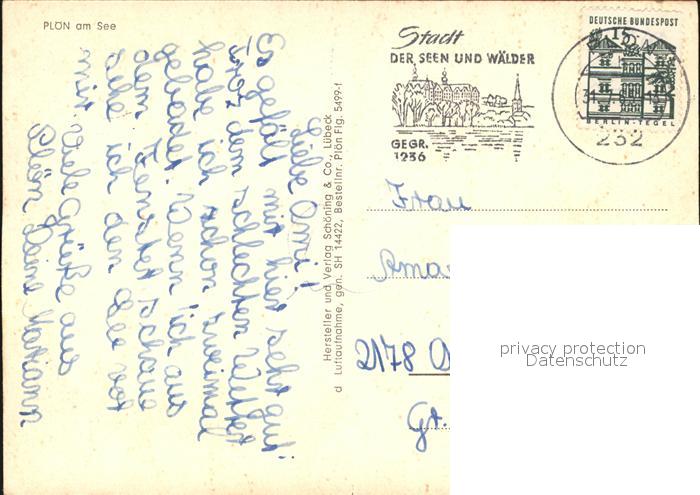 PLÖN am See
Liebe Omi!
Es gefällt mir hier sehr gut.
Trotz dem schlechten Wetter
habe ich schon zweimal
gebadet. Wenn ich aus
dem Fenster schaue
sehe ich den See vor
mir. Viele Grüße aus
Plön Deine
Hersteller und Verlag Schöning & Co., Lübeck
d Luftaufnahme, gen. SH 14422, Bestellnr. Plön Flg. 5499-f
Stadt
DER SEEN UND WÄLDER
GEGR.
1236
DEUTSCHE BUNDESPOST
15
BERLIN-TEGEL
232
Frau
2178
Gt.
privacy protection
Datenschutz